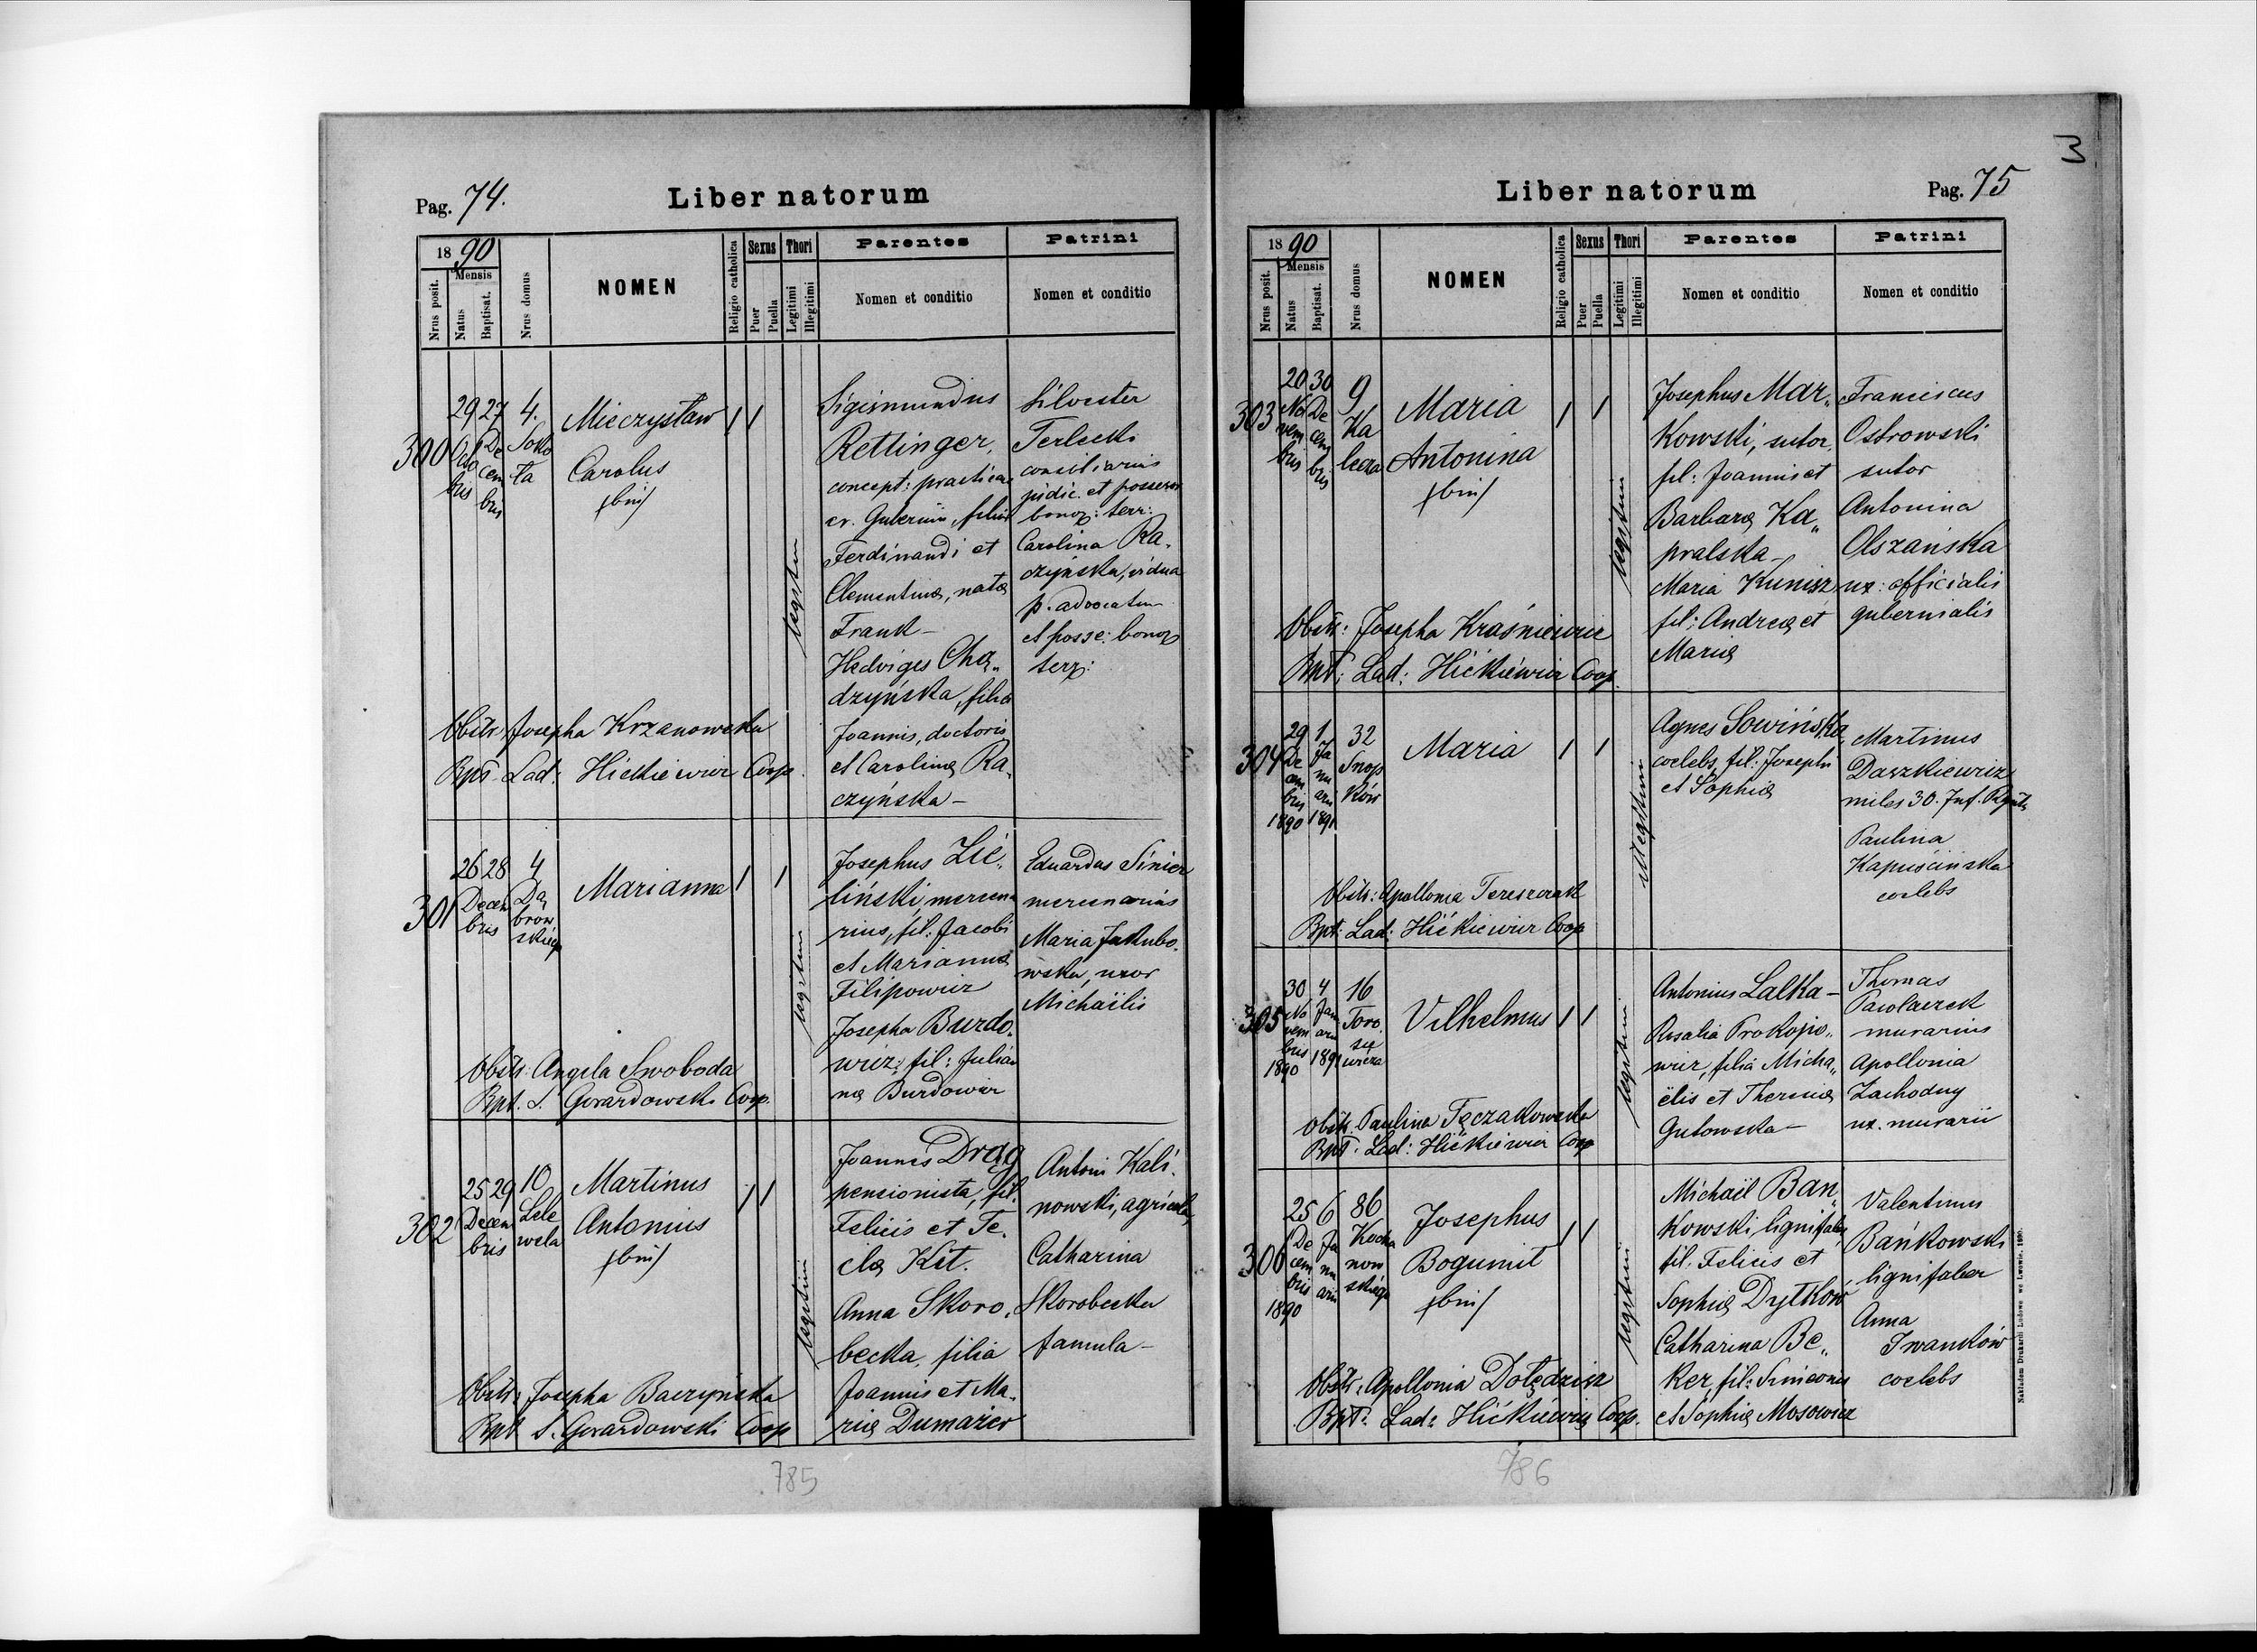 Pag. 74.
Liber natorum
1890
Nrus posit.
Mensis
Natus
Baptisat.
Nrus domus
NOMEN
Religio catholica
Sexus
Puer
Puella
Thori
Legitimi
Illegitimi
Parentes
Nomen et conditio
Patrini
Nomen et conditio
300
29 Octobris
27 Decembris
4. Sokoła
Mieczysław
Carolus
(bin)
legitim
Sigismundus
Rettinger,
concept: practicans
cr. Gubernii, filius
Ferdinandi et
Clementinæ, natæ
Frank –
Hedviges Chą„
dzyńska, filia
Joannis, doctoris
et Carolinæ Ra„
czyńska –
Silvester
Terlecki
consiliarius
judic. et possessor
bonor: terr:
Carolina Ra„
czyńska, vidua
p. advocatum
et posse: bonor
terr:
Obstr. Josepha Krzanowska
Bpt. Lad: Hićkiewicz Coop.
301
26 28
Decembris
4
Dą
brow
skiego
Marianna
legitim
Josephus Zie„
liński, mercena
rius, fil: Jacobi
et Mariannæ
Filipowicz
Josepha Burdo„
wicz: fil: Julian
næ Burdowicz
Eduardus Sinier
mercenarius
Maria Jakubo„
wska, uxor
Michaïlis
Obstr: Angela Swoboda
Bpt. S. Gerardowski Coop.
302
25 29
Decembris
10
Lele
wela
Martinus
Antonius
(bin)
legitim
Joannes Drąg
pensionista, fil.
Felicis et Te„
clæ Kit.
Anna Skoro„
becka, filia
Joannis et Ma„
riæ Dumazier
Antoni Kali„
nowski, agricola,
Catharina
Skorobecka
famula –
Obstr: Josepha Baczyńska
Bpt S. Gerardowski Coop
785
3
Liber natorum
Pag. 75
1890
Nrus posit.
Mensis
Natus
Baptisat.
Nrus domus
NOMEN
Religio catholica
Sexus
Puer
Puella
Thori
Legitimi
Illegitimi
Parentes
Nomen et conditio
Patrini
Nomen et conditio
303
20 Novembris
30 Decembris
9
Ka
lecza
Maria
Antonina
(bin)
legitim
Josephus Mar„
kowski, sutor,
fil: Joannis et
Barbaræ Ka„
pralska –
Maria Kunisz
fil: Andreæ et
Mariæ
Franciscus
Ostrowski
sutor
Antonina
Olszańska
ux: officialis
gubernialis
Obstr: Josepha Kraśniewicz
Bpt: Lad: Hićkiéwicz Coop.
304
29 Decembris 1890
1 Januarii 1891
32
Snop
ków
Maria
illegitim
Agnes Sowińska,
coelebs, fil: Josephi
et Sophiæ
Martinus
Daszkiewicz
miles 30. Inf. Rgmts
Paulina
Kapuścińska
coelebs
Obstr: Apollonia Tereszczak
Bpt: Lad: Hićkiewicz Coop
305
30 Novembris 1890
4 Januarii 1891
16
Toro
sie
wicza
Vilhelmus
legitim
Antonius Lalka –
Rosalia Prokopo„
wicz, filia Micha„
ëlis et Theresiæ
Gutowska –
Thomas
Pawlaczek
murarius
Apollonia
Zachodny
ux. murarii
Obstr. Paulina Tęczakowska
Bpt. Lad: Hićkiewicz Coop
306
25 Decembris 1890
6 Januarii
86
Kocha
now
skiego
Josephus
Bogumił
(bin)
legitim
Michaïl Bań„
kowski lignifaber
fil. Felicis et
Sophiæ Dytkow
Catharina Be„
ker, fil: Simeonis
et Sophiæ Mosowicz
Valentinus
Bańkowski
lignifaber
Anna
Iwanków
coelebs
Obstr: Apollonia Dołędzisz
Bpt: Lad: Hićkiéwicz Coop.
Nakładem Drukarni Ludowej we Lwowie. 1890.
786